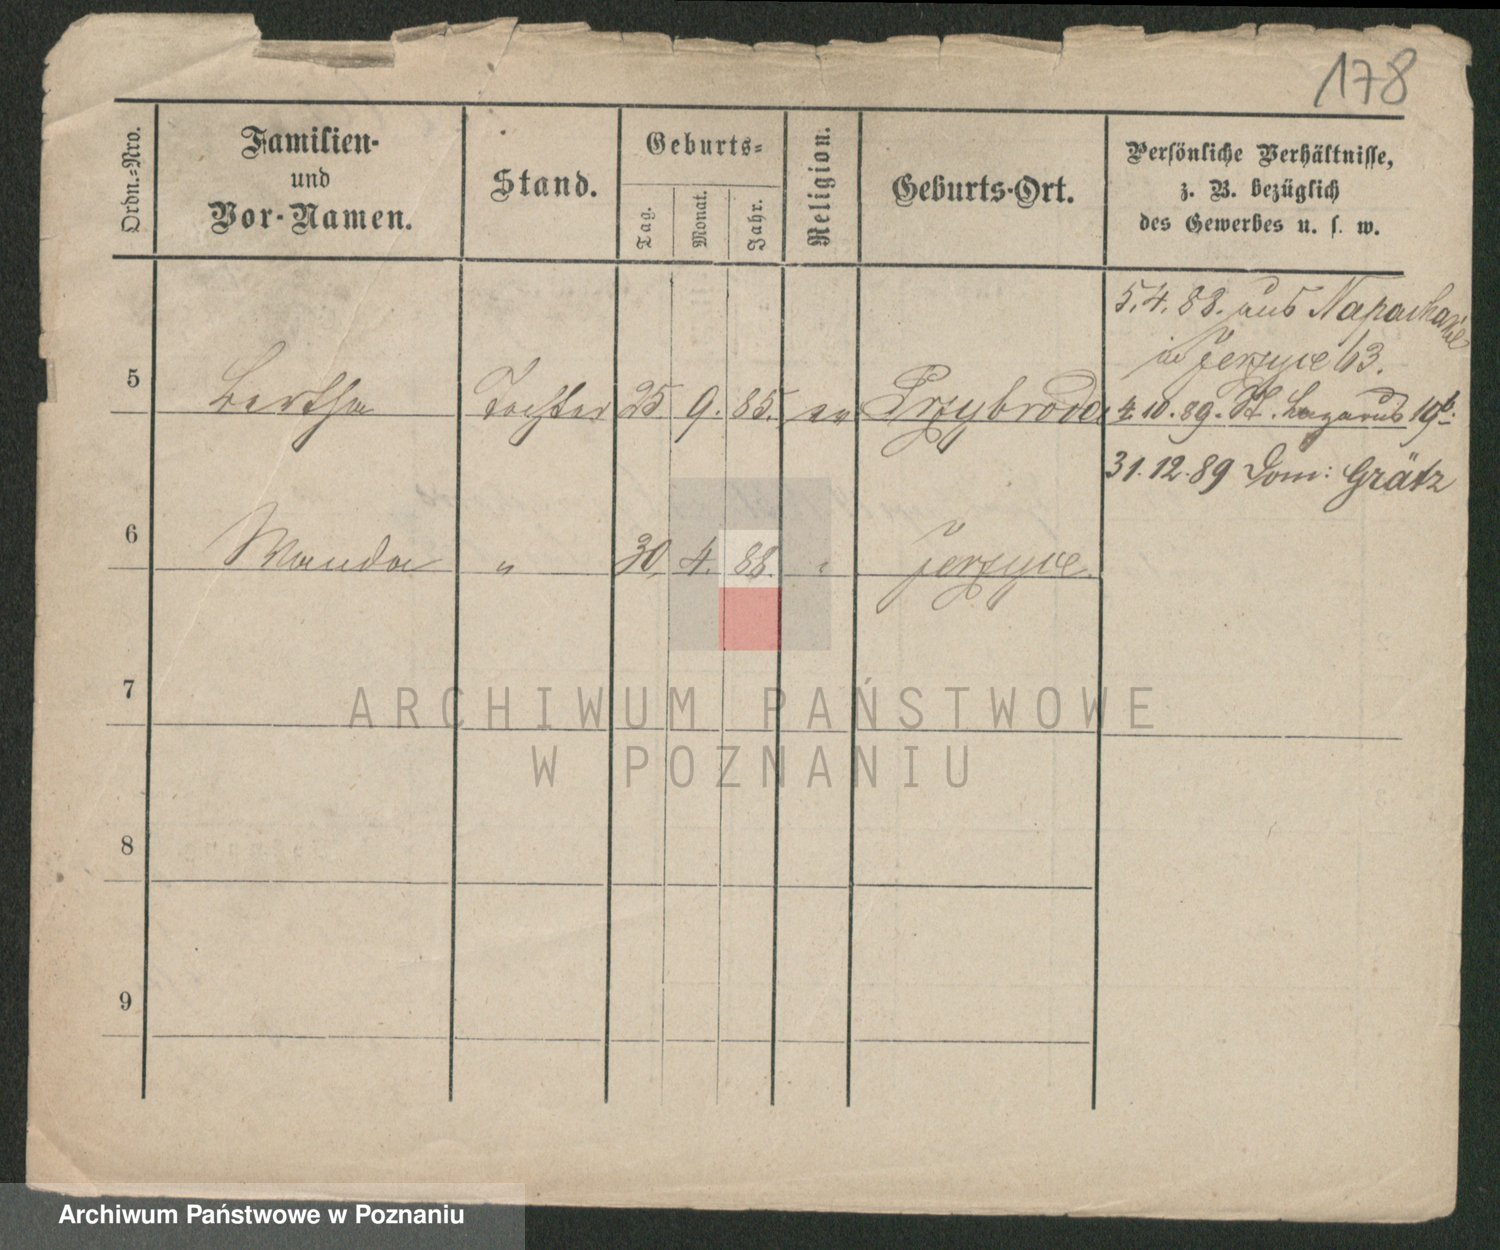 178
Ordn.-Nro.
Familien-
und
Vor-Namen.
Stand.
Geburts-
Tag.
Monat.
Jahr.
Religion.
Geburts-Ort.
Persönliche Verhältnisse,
z. B. bezüglich
des Gewerbes u. s. w.
5.4.88. aus Napachanie
in Jerzyce 63.
5 Bertha Tochter 25 9. 85. ev Przybroda 4.10.89. St. Lazarus 19b.
31.12.89 Dom: Grätz
6 Wanda " 30. 4. 88. " Jerzyce.
7
ARCHIWUM PAŃSTWOWE
W POZNANIU
8
9
Archiwum Państwowe w Poznaniu